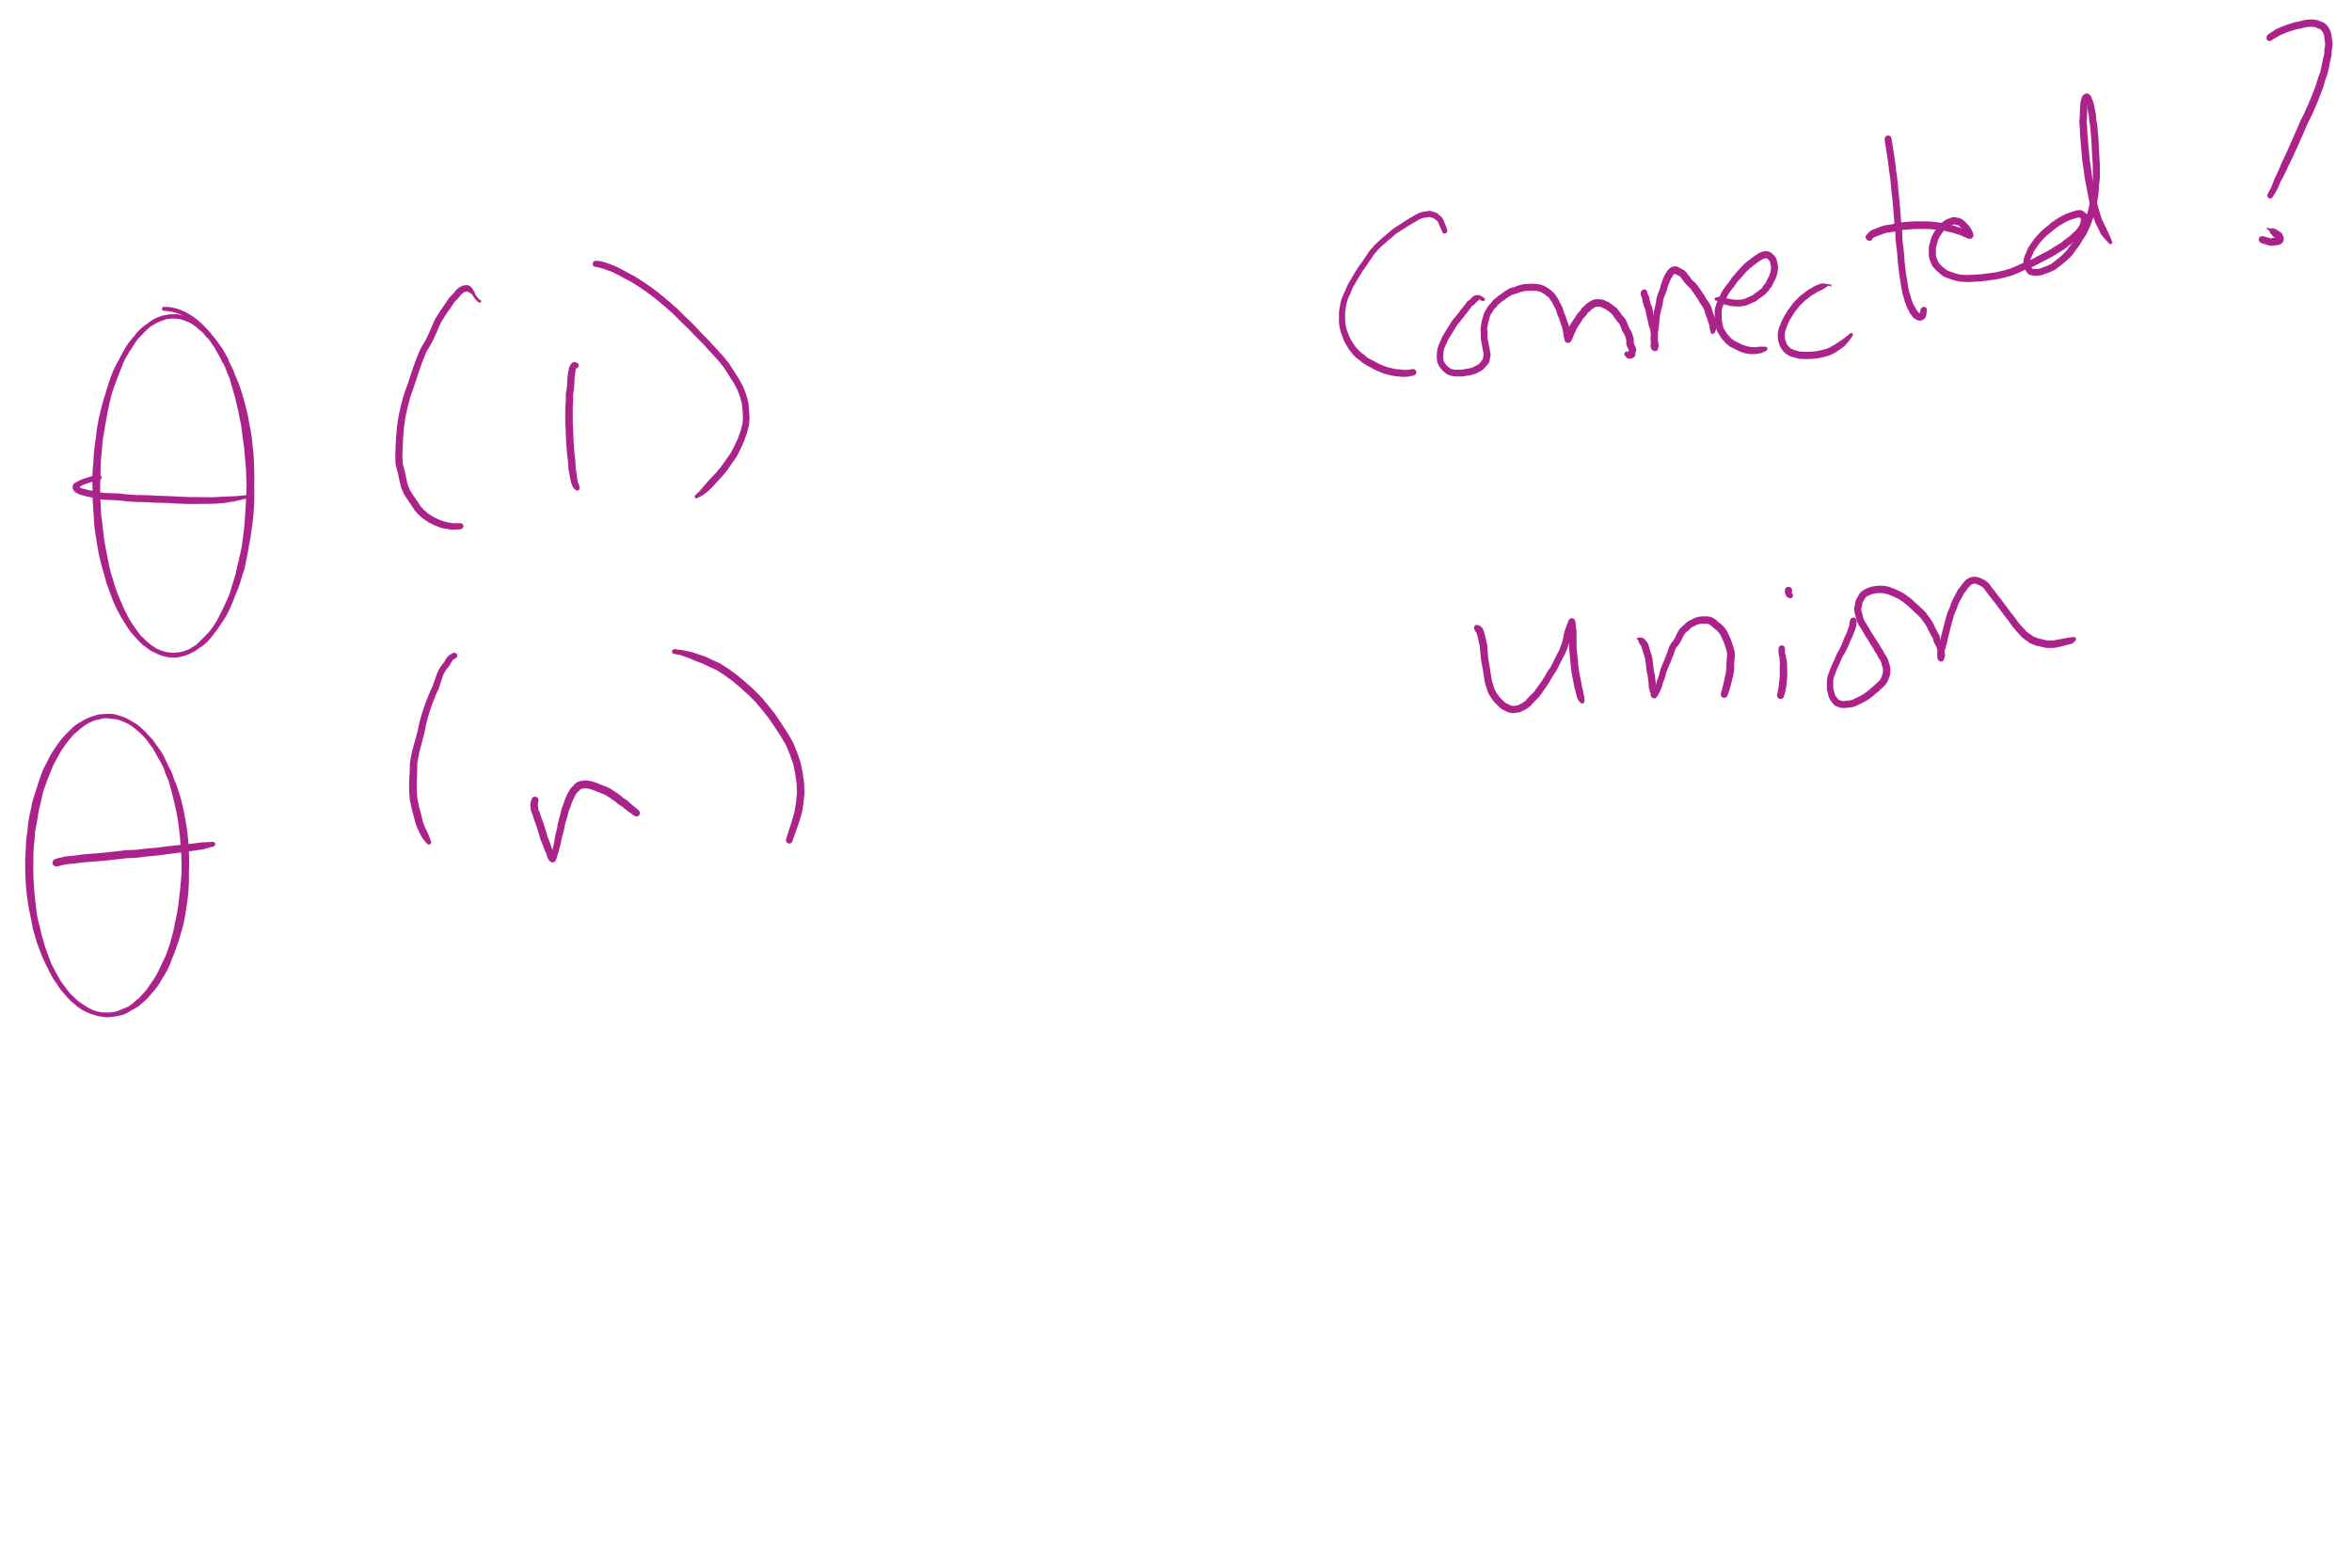 Θ (1) connected?
Θ (n) union